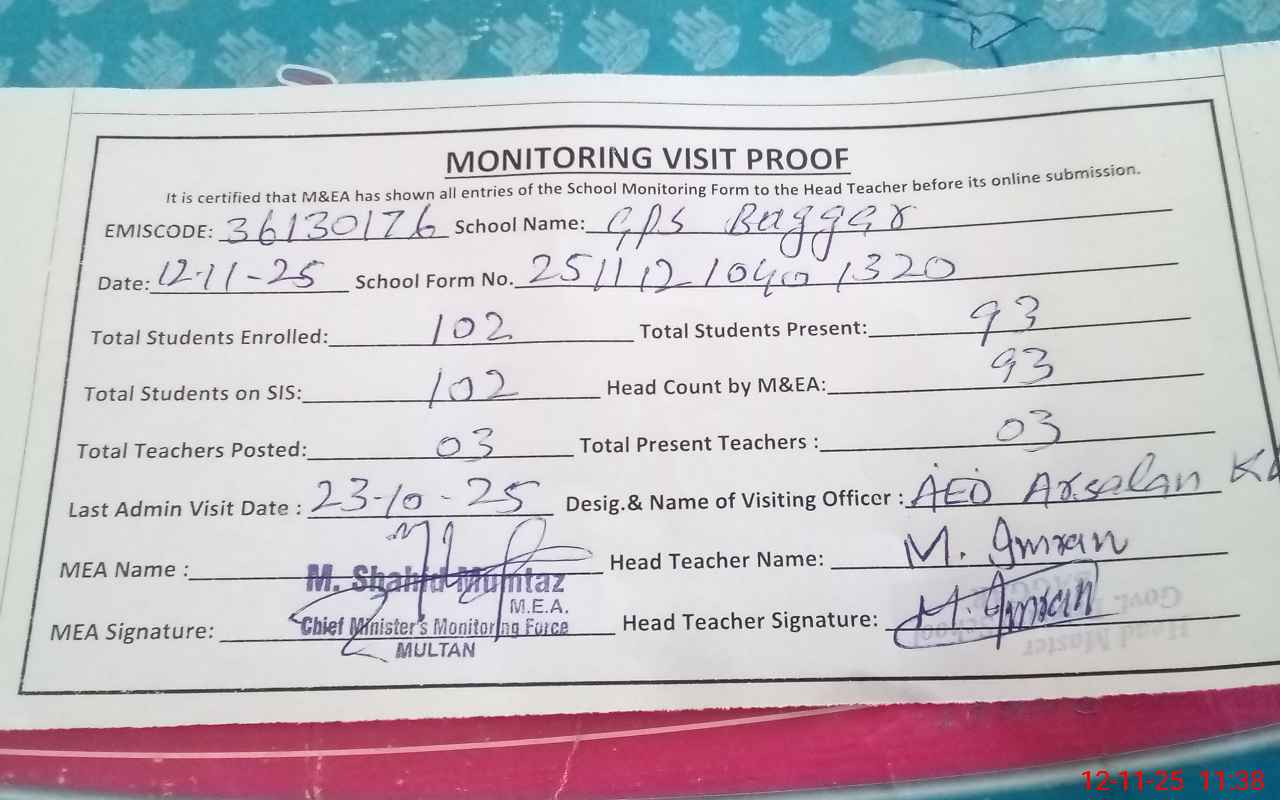 MONITORING VISIT PROOF
It is certified that M&EA has shown all entries of the School Monitoring Form to the Head Teacher before its online submission.
EMISCODE: 36130176 School Name: GPS Baggar
Date: 12-11-25 School Form No. 251112104001320
Total Students Enrolled: 102 Total Students Present: 93
Total Students on SIS: 102 Head Count by M&EA: 93
Total Teachers Posted: 03 Total Present Teachers : 03
Last Admin Visit Date : 23-10-25 Desig.& Name of Visiting Officer : AEO Arsalan
MEA Name : M. Shahid Mumtaz Head Teacher Name: M. Imran
M.E.A.
MEA Signature: Chief Minister's Monitoring Force Head Teacher Signature: M. Imran
MULTAN
Head Master
Govt.
School
12-11-25 11:38